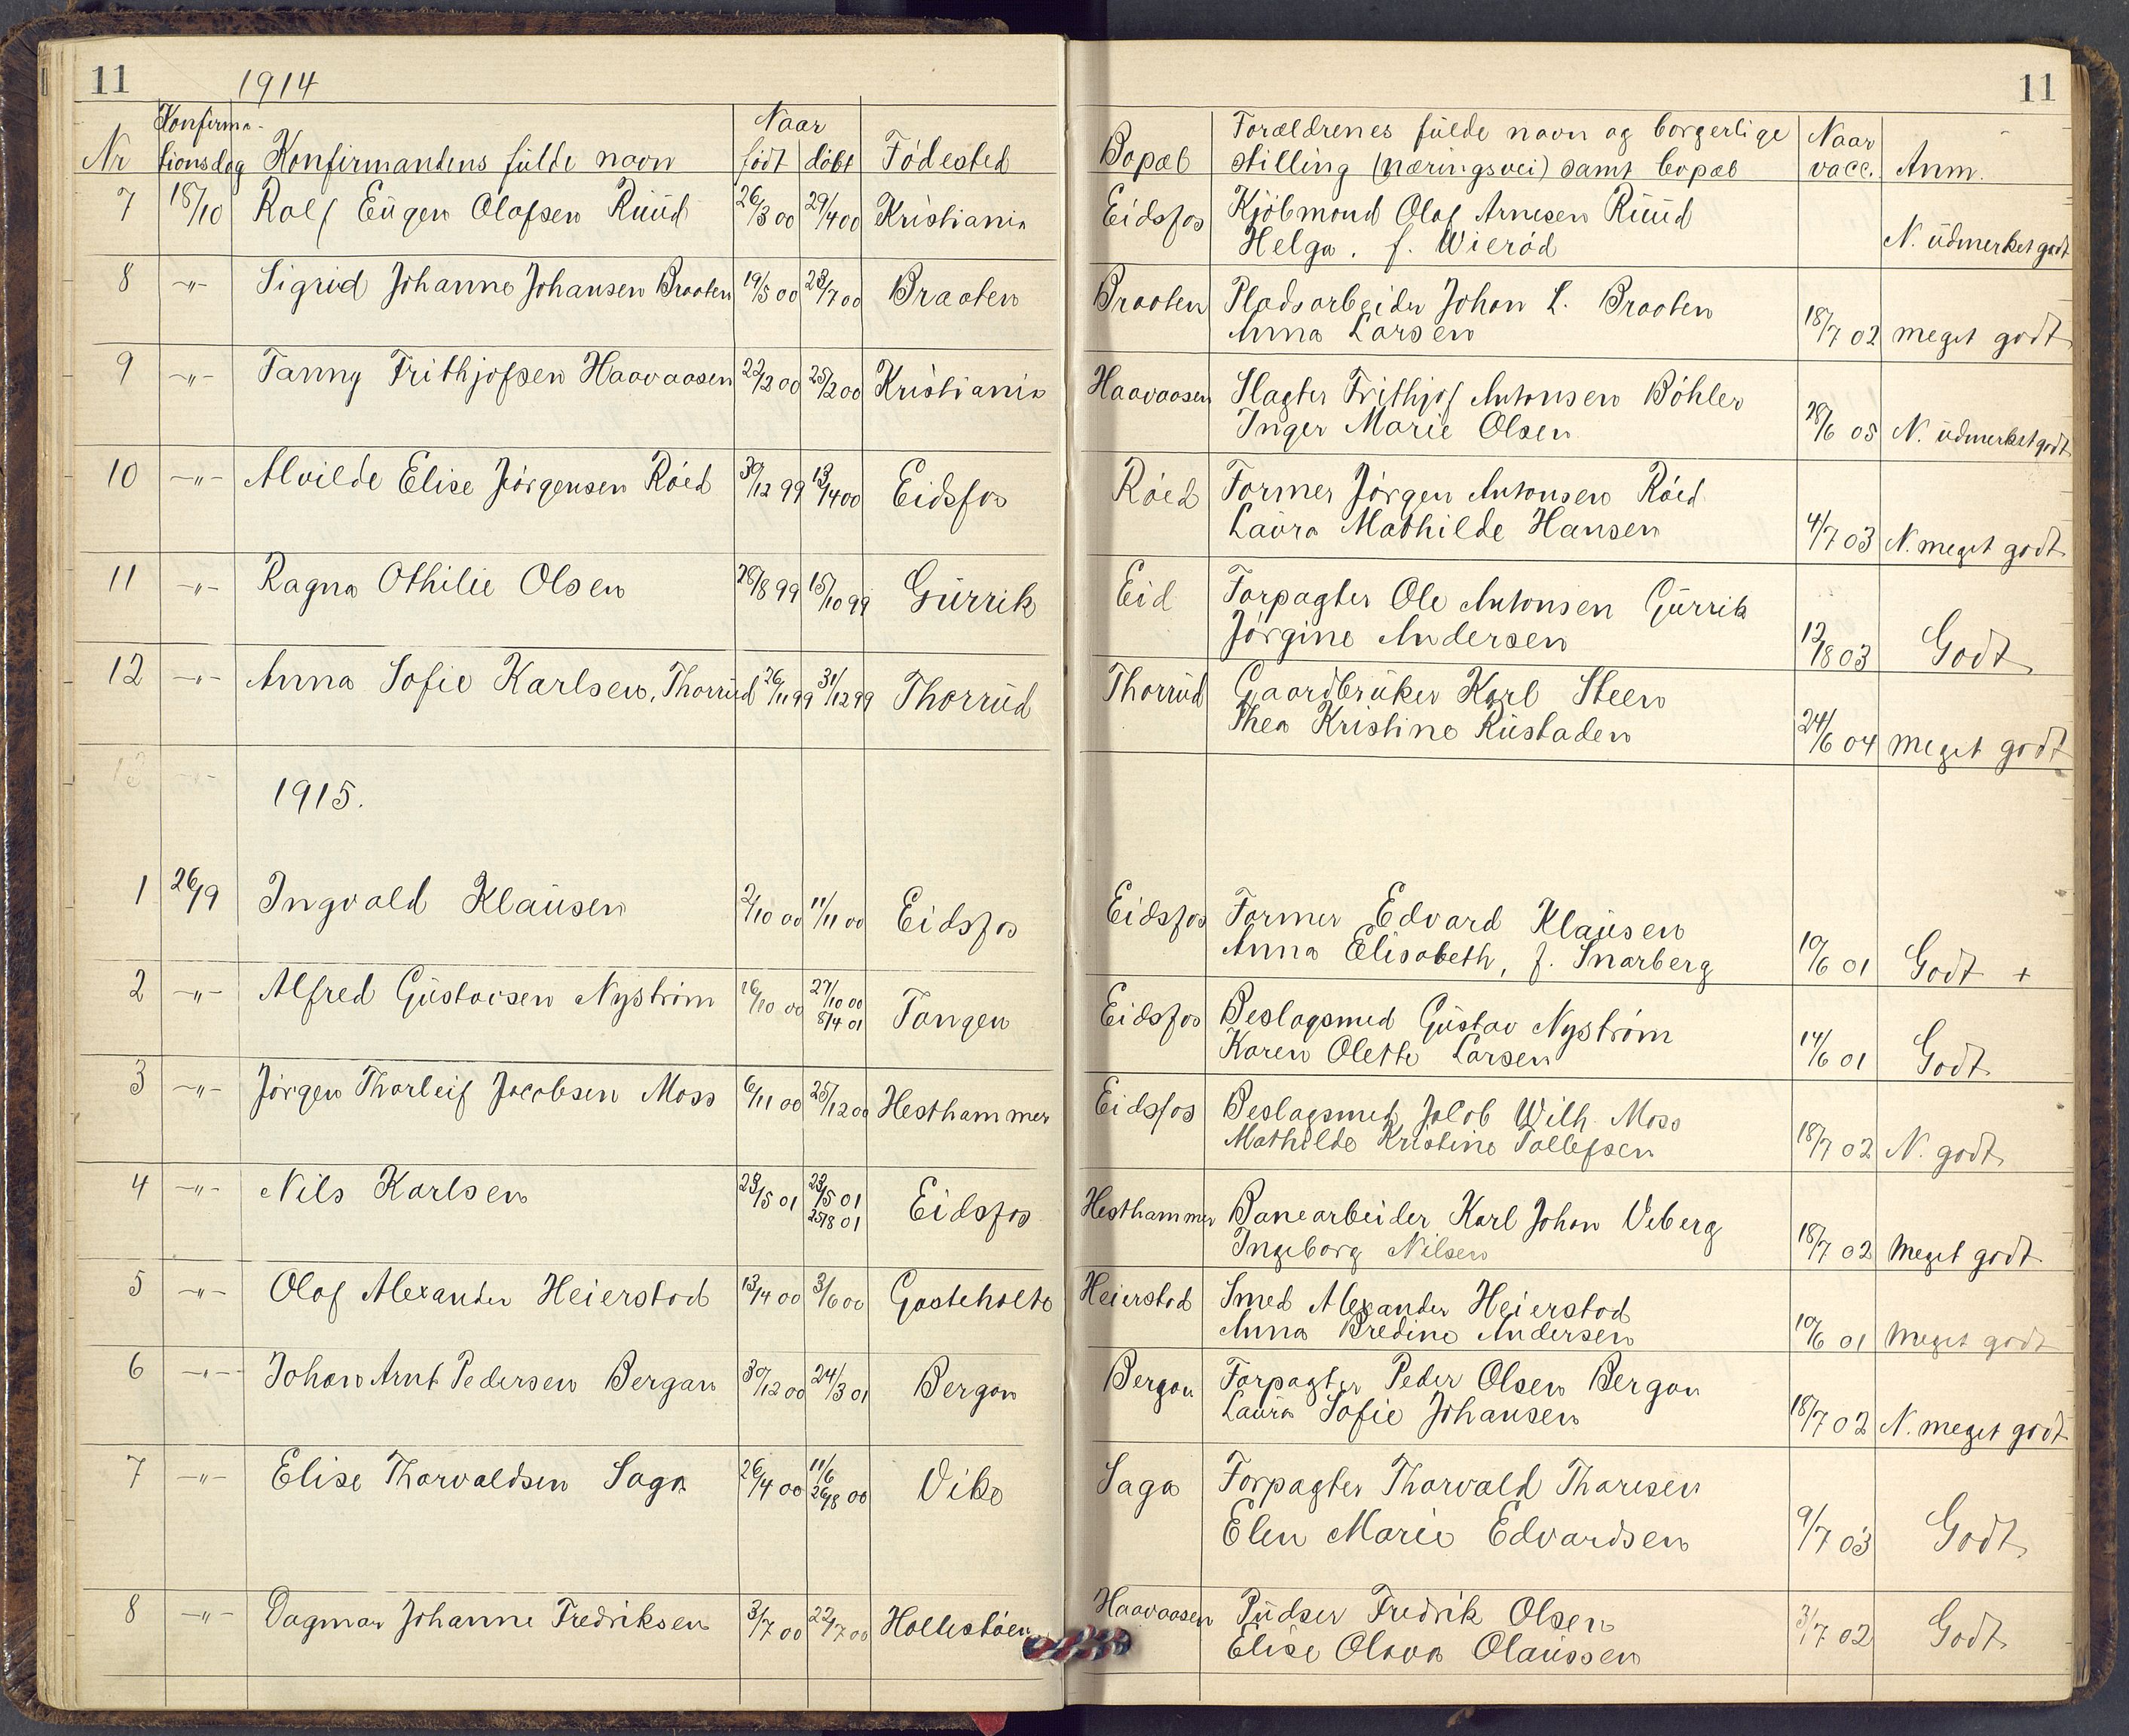 11 1914
Nr Konfirma-tionsdag Konfirmandens fulde navn Naar født døbt Fødested
7 18/10 Rolf Eugen Olafsen Ruud 26/3 00 29/4 00 Kristiania
8 -"- Sigrid Johanne Johansen Braaten 19/5 00 23/7 00 Braaten
9 -"- Fanny Frithjofsen Haavaasen 22/12 00 Kristiania
10 -"- Alvilde Elise Jørgensen Røed 30/12 99 13/4 00 Eidsfos
11 -"- Ragna Othilie Olsen 28/8 99 15/10 99 Gurrik
12 -"- Anna Sofie Karlsen, Thorrud 26/11 99 31/12 99 Thorrud
13 -"-
1915.
1 26/9 Ingvald Klausen 2/10 00 11/11 00 Eidsfos
2 -"- Alfred Gustavsen Nystrøm 16/10 00 27/10 00 8/4 01 Tangen
3 -"- Jørgen Thorleif Jacobsen Moss 6/11 00 25/12 00 Hesthammer
4 -"- Nils Karlsen 23/5 01 23/5 01 25/8 01 Eidsfos
5 -"- Olaf Alexander Heierstad 13/4 00 3/6 00 Gasteholte
6 -"- Johan Arnt Pedersen Bergan 30/12 00 24/3 01 Bergan
7 -"- Elise Thorvaldsen Saga 26/4 00 11/6 26/8 00 Vike
8 -"- Dagmar Johanne Fredriksen 3/7 00 22/7 00
11
Bopæl Forældrenes fulde navn og borgerlige stilling (næringsvei) samt bopæl Naar vacc. Anm.
Eidsfos Kjøbmand Olaf Arnesen Ruud
Helga. f. Wierød N. udmerket godt
Braaten Pladsarbeider Johan L. Braaten
Anna Larsen 18/7 02 meget godt
Haavaasen Slagter Frithjof Antonsen Bøhler
Inger Marie Olsen 28/6 05 N. udmerket godt
Røed Former Jørgen Antonsen Røed
Laura Mathilde Hansen 4/7 03 N. meget godt
Eid Forpagter Ole Antonsen Gurrik
Jørgine Andersen 12/8 03 Godt
Thorrud Gaardbruker Karl Steen
Thea Kristine Rustaden 24/6 04 meget godt
Eidsfos Former Edvard Klausen
Anna Elisabeth, f. Snarberg 10/6 01 Godt +
Eidsfos Beslagsmed Gustav Nystrøm
Karen Olette Larsen 14/6 01 Godt
Eidsfos Beslagsmed Jakob Wilh. Moss
Mathilde Kristine Tollefsen 18/7 02 N. godt
Hesthammer Banearbeider Karl Johan Veberg
Ingeborg Nilsen 18/7 02 Meget godt
Heierstad Smed Alexander Heierstad
Anna Bredine Andersen 10/6 01 Meget godt
Bergan Forpagter Peder Olsen Bergan
Laura Sofie Johansen 18/7 02 N. meget godt
Saga Forpagter Thorvald Thoresen
Elen Marie Edvardsen 9/7 03 Godt
Haavaasen Pudser Fredrik Olsen
Elise Olava Olaussen 3/7 02 Godt